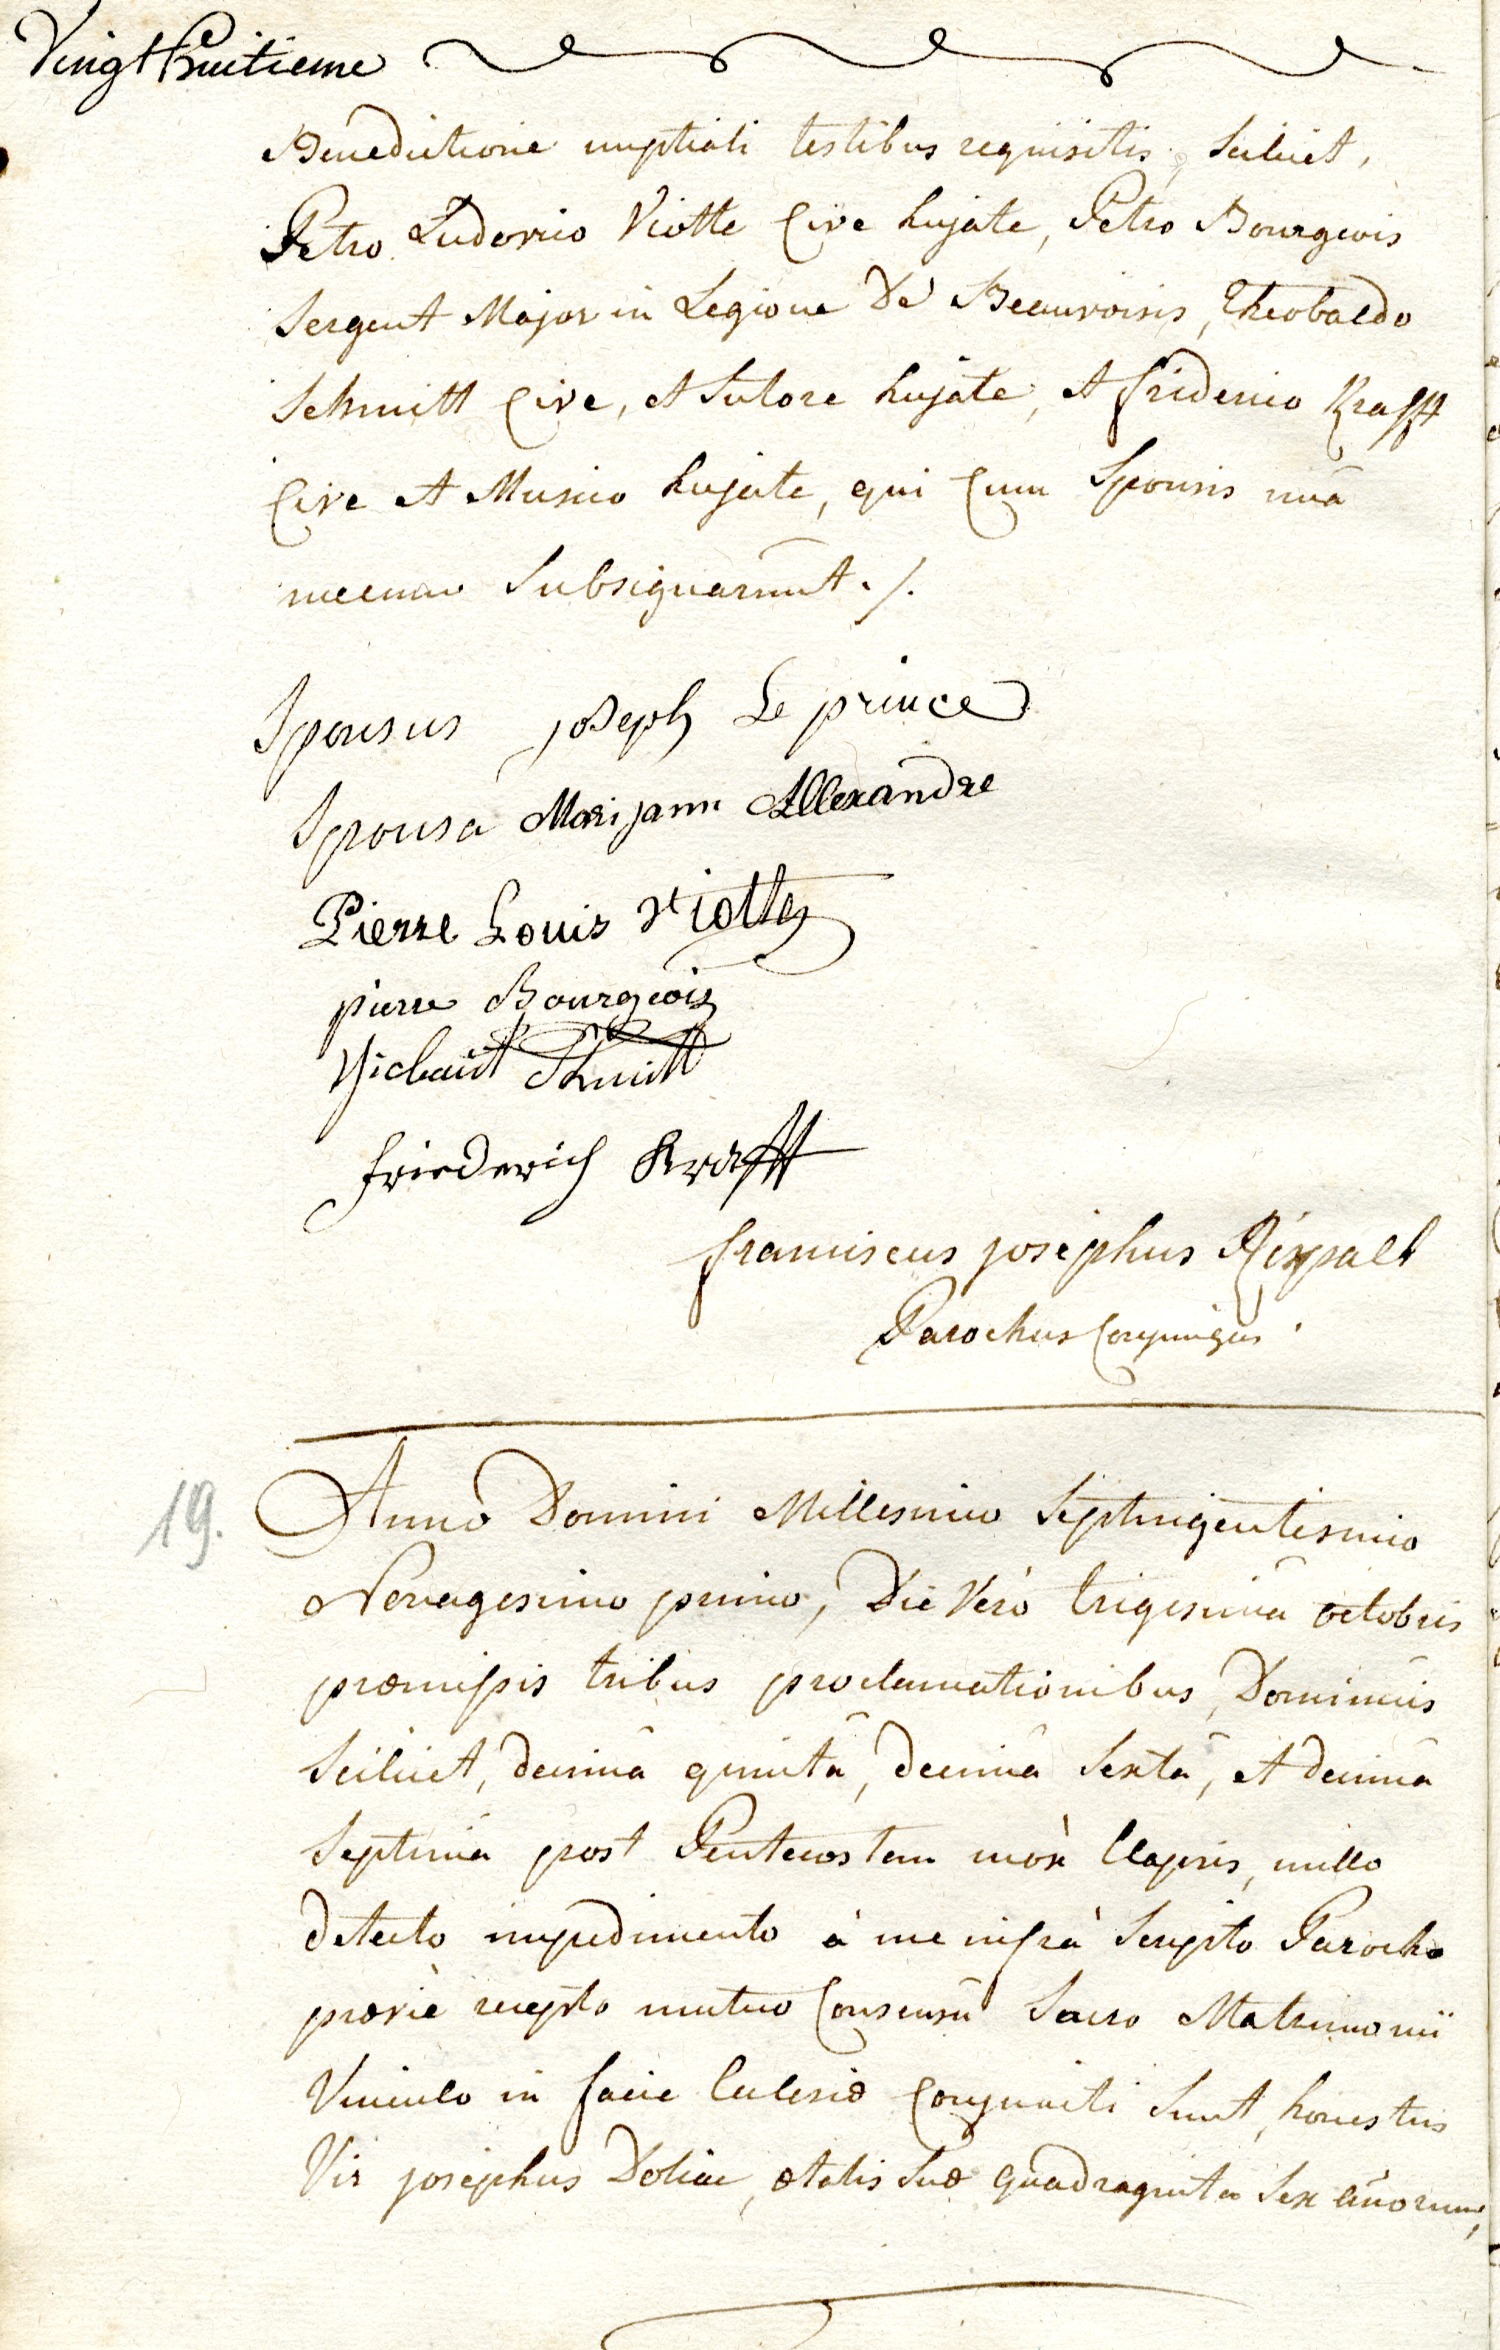 Vingt huitieme
Benedictione nuptiali testibus requisitis, Scilicet,
Petro Ludovico Viotte Cive hujate, Petro Bourgeois
Sergent Major in Legione De Beauvoisis, Theobaldo
Schmitt Cive, et Sutore hujate, et friderico Krafft
Cive et Musico hujate, qui Cum Sponsis unà
mecum Subsignarunt ./.
Sponsus joseph Le prince
Sponsa Marijann Allexandre
Pierre Louis Viotte
pierre Bourgeois
Thiebaut Schmitt
friederich Krafft
franciscus josephus
Parochus Conjungens.
19. Anno Domini Millesimo Septingentesimo
Nonagesimo primo, Die Verò trigesimâ octobris
præmissis tribus proclamationibus, Dominicis
Scilicet, decimâ quintâ, decimâ Sextâ, et decimâ
Septimâ post Pentecostem mox Elapsis, nullo
detecto impedimento à me infrà Scripto Parocho
prævie recepto mutuo Consensu Sacro Matrimonii
Vinculo in facie Ecclesiæ Conjuncti Sunt, honestus
Vir josephus ætatis Suæ quadraginta Sex annorum,